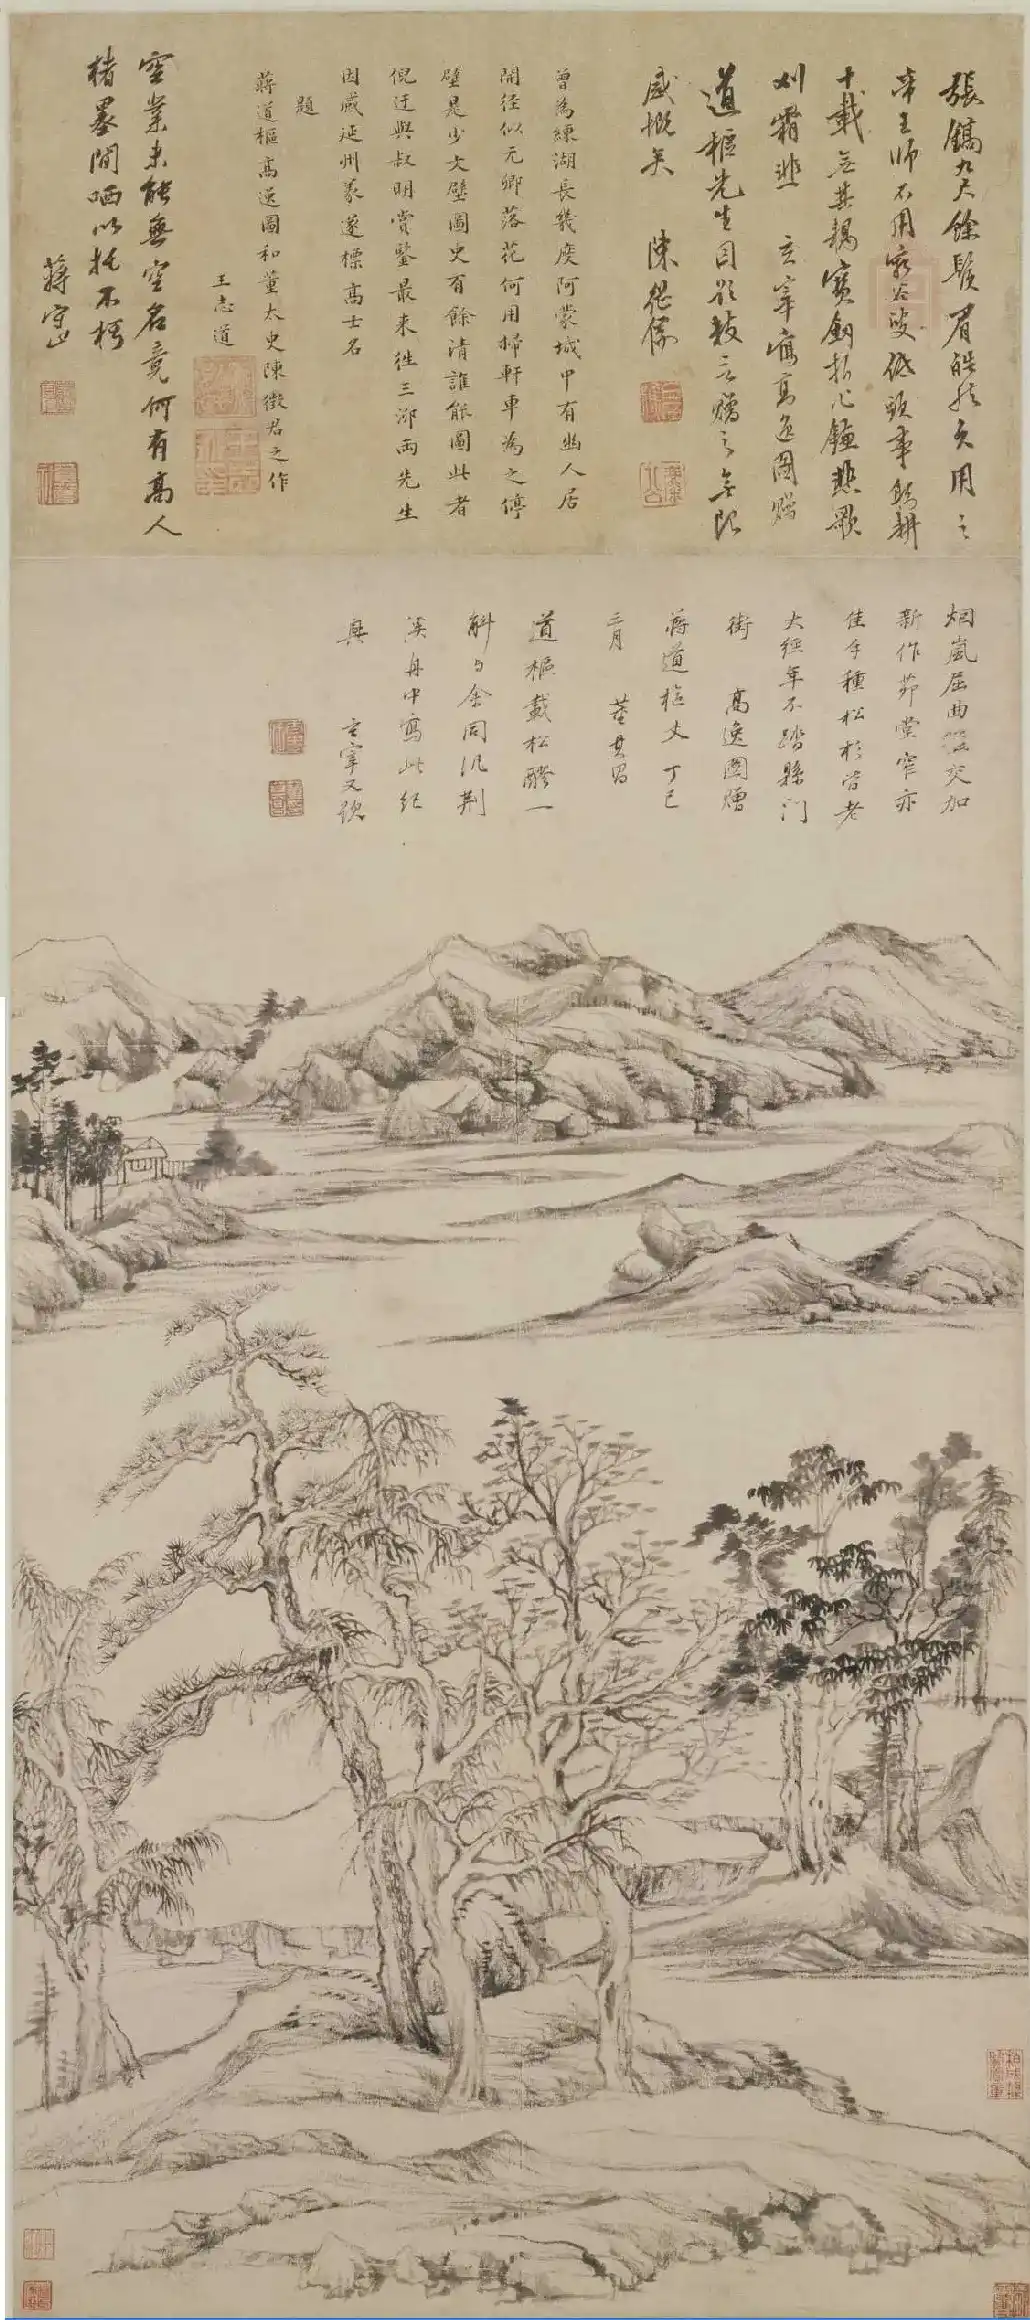 張鎬九尺餘眉皓然用之
帝王師不用窮谷叟低頭事躬耕
十載無其耦寶劍折鐮悲歌
刈霜韭 玄宰寫高逸圖贈
道樞先生因贈之無限
感慨矣 陳繼儒
曾為練湖長幾度阿蒙城中有幽人居
開徑似元卿落花何用掃軒車為之停
壁是少文壁圖史有餘清誰能圖此者
倪迂與叔明賞鑒最來往三泖兩先生
因感延州篆遂標高士名
題
蔣道樞高逸圖和董太史陳徵君之作
王志道
空業未能無空名竟何有高人
楮墨間哂以托不朽
蔣守止
烟嵐屈曲徑交加
新作茆堂窄亦
佳手種松杉皆老
大經年不踏縣門
街 高逸圖贈
蔣道樞丈 丁巳
三月 董其昌
道樞載松醪一
斛與余同汎荊
溪舟中寫此紀
興 玄宰又識